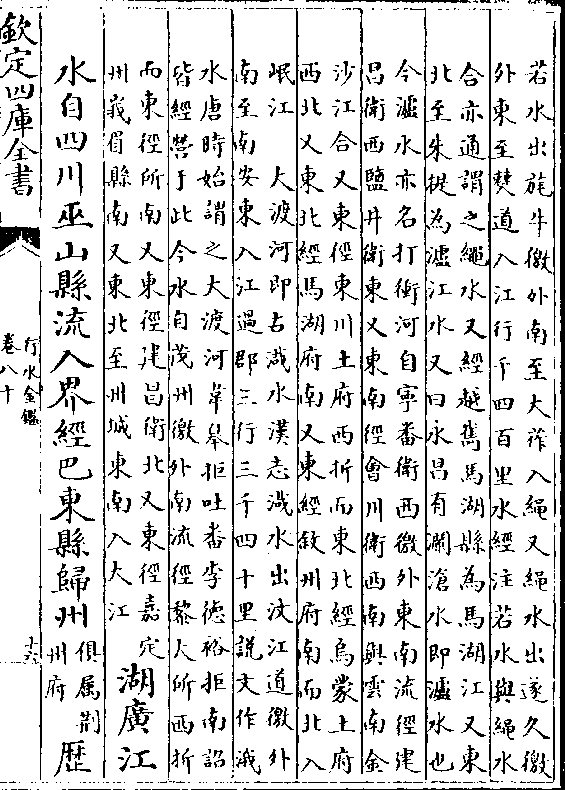 若水出旄牛徼外南至大莋入繩又繩水出遂久徼
外東至僰道入江行千四百里水經注若水與繩水
合亦通謂之繩水又經越嶲馬湖縣為馬湖江又東
北至朱提為瀘江水又曰永昌有瀾滄水即瀘水也
今瀘水亦名打衝河自寧番衛西徼外東南流徑建
昌衛西鹽井衛東又東南徑會川衛西南與雲南金
沙江合又東徑東川土府西折而東北經烏蒙土府
西北又東北經馬湖府南又東經敘州府南而北入
岷江　大渡河即古涐水漢志涐水出汶江道徼外
南至南安東入江過郡三行三千四十里說文作涐
水唐時始謂之大渡河韋皋拒吐番李德裕拒南詔
皆經營于此今水自茂州徼外南流徑黎大所西折
而東徑所南又東徑建昌衛北又東徑嘉定
州峩眉縣南又東北至州城東南入大江
湖廣江
水自四川巫山縣流入界經巴東縣歸州俱属荆州府歴
欽定四庫全書
行水金鑑
卷八十
十六